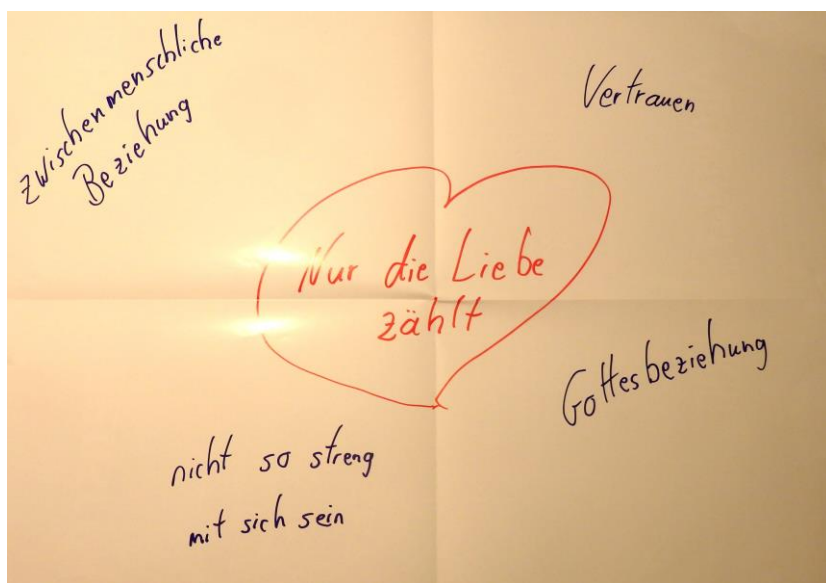 zwischenmenschliche
Beziehung
Vertrauen
Nur die Liebe
zählt
Gottesbeziehung
nicht so streng
mit sich sein